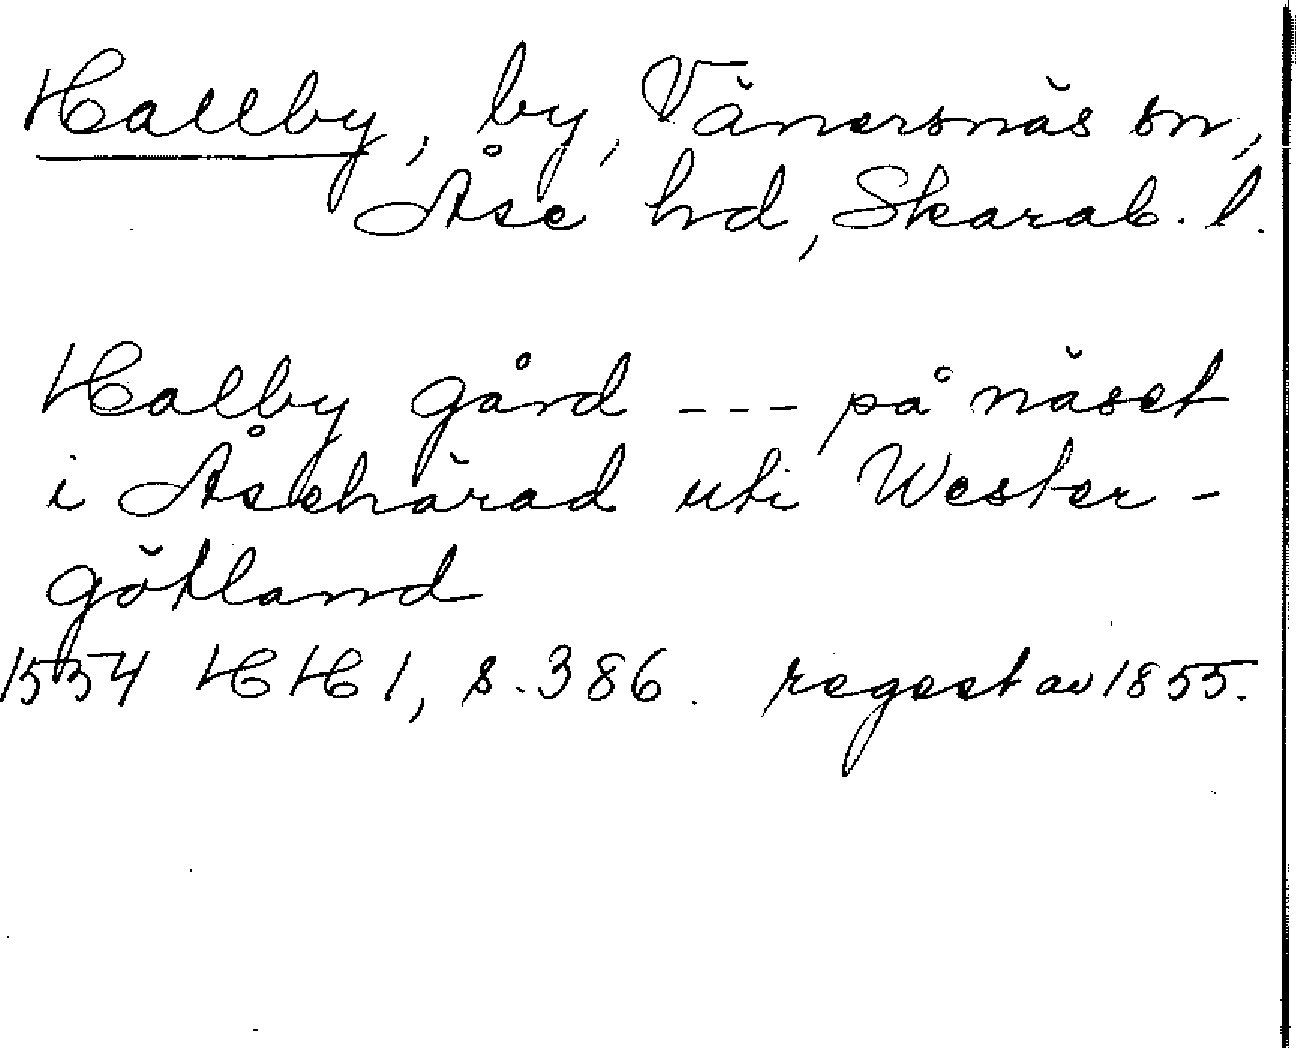 Hallby, by, Vänersnäs sn,
Åse hd, Skarab. l.
Halby gård --- på näset
i Åsehärad uti Wester-
götland
1554 HH 1, s. 386. regest av 1855.